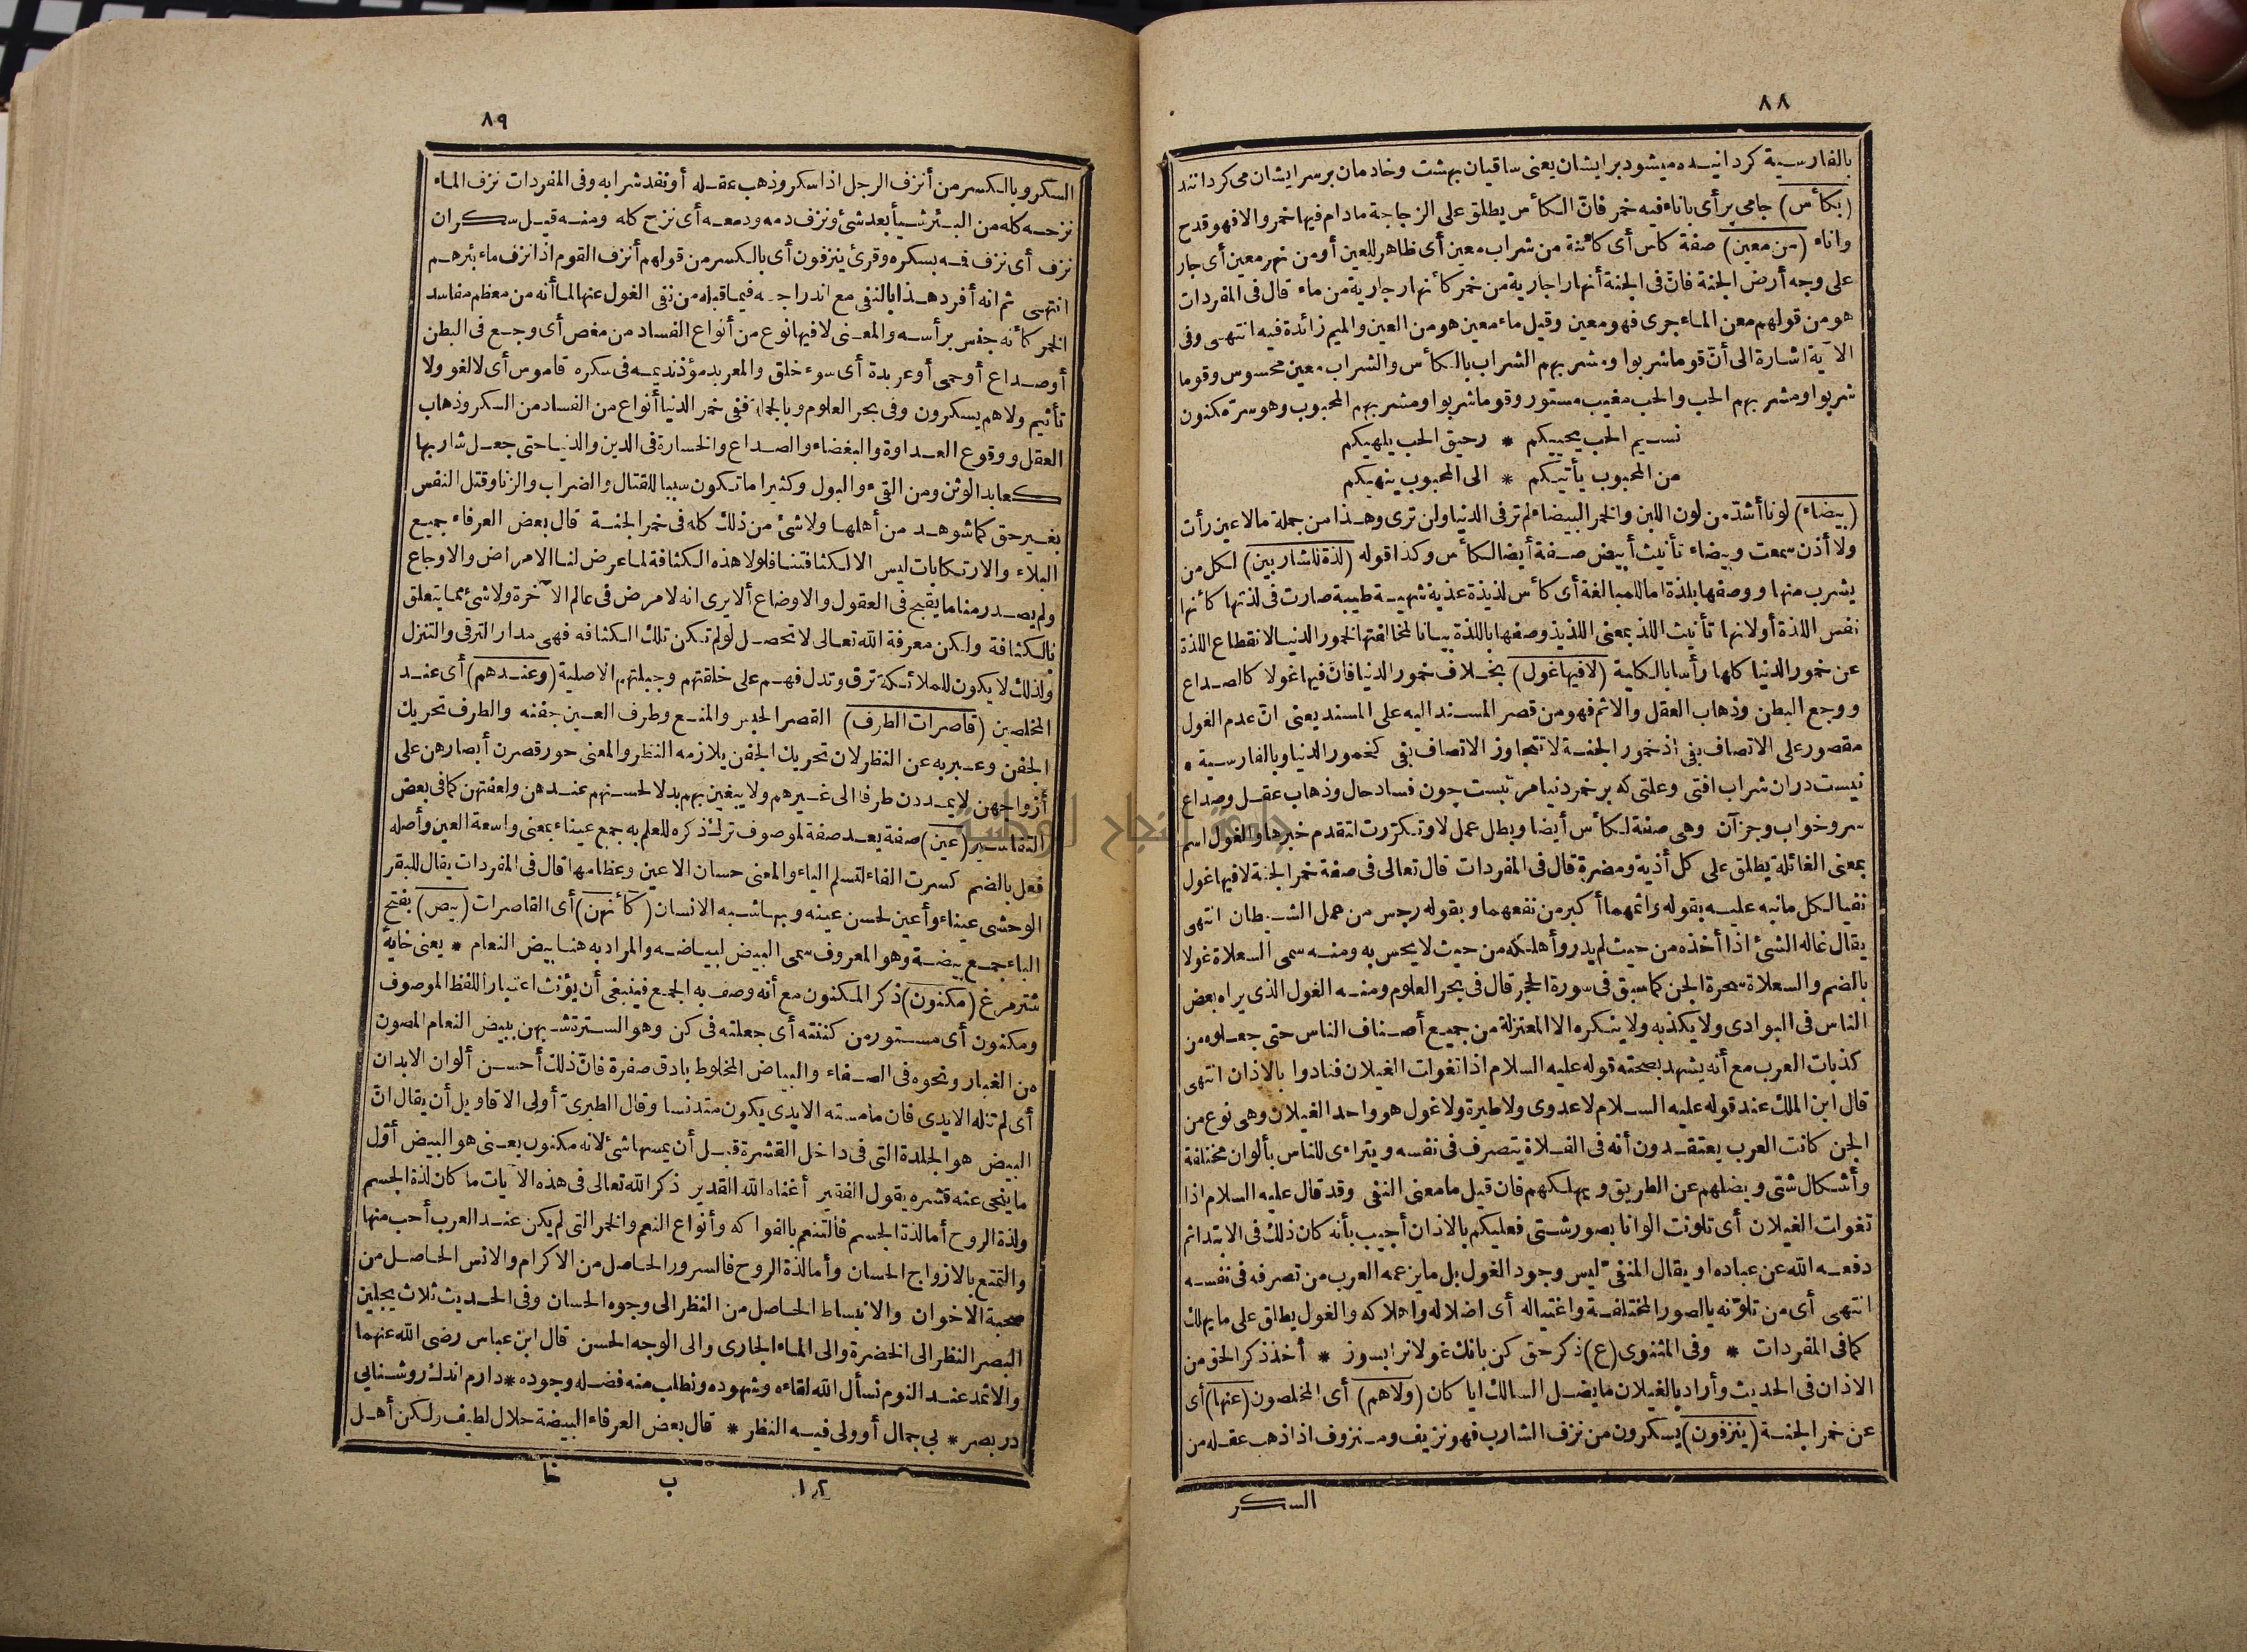 ٨٨
بالفارسية كردانيده ميشود برايشان يعنى ساقيان بهشت وخادمان برسر ايشان مى كردانند
(بكأس) جامى پر أى باناء فيه خمر فانّ الكأس يطلق على الزجاجة مادام فيها خمر والا فهو قدح
واناء (من معين) صفة كاس أى كائنة من شراب معين أى ظاهر للعين أو من نهر معين أى جار
على وجه أرض الجنة فانّ فى الجنة أنهارا جارية من خمر كأنهار جارية من ماء قال فى المفردات
هو من قولهم معن الماء جرى فهو معين وقيل ماء معين هو من العين والميم زائدة فيه انتهى وفى
الآية اشارة الى أنّ قوما شربوا ومشربهم الشراب بالكأس والشراب معين محسوس وقوما
شربوا ومشربهم الحب والحب مغيب مستور وقوما شربوا ومشربهم المحبوب وهو سرّ مكنون
نسيم الحب يحييكم * رحيق الحب يلهيكم
من المحبوب يأتيكم * الى المحبوب ينهيكم
(بيضاء) لونا أشدّ من لون اللبن والخمر البيضاء لم ترفى الدنيا ولن ترى وهذا من جملة مالا عين رأت
ولا أذن سمعت وبيضاء تأنيث أبيض صفة أيضا لكأس وكذا قوله (لذة للشاربين) لكل من
يشرب منها ووصفها بلذة اما للمبالغة أى كأس لذيذة عذبة شهية طيبة صارت فى لذتها كأنها
نفس اللذة أو لانها تأنيث اللذ بمعنى اللذيذ وصفها باللذة بيانا لمخالفتها لخمور الدنيا لانقطاع اللذة
عن خمور الدنيا كلها رأسا بالكلية (لا فيها غول) بخلاف خمور الدنيا فانّ فيها غولا كالصداع
ووجع البطن وذهاب العقل والاثم فهو من قصر المسند اليه على المسند يعنى انّ عدم الغول
مقصور على الاتصاف بفى اذ خمور الجنة لا تتجاوز الاتصاف بفى كخمور الدنيا وبالفارسية *
نيست دران شراب افتى وعلتى كه برخمر دنيا مرتبست چون فساد حال وذهاب عقل وصداع
سر وخواب وجز آن وهى صفة لكأس أيضا وبطل عمل لا وتكررت لتقدم خبرها والغول اسم
بمعنى الغائلة يطلق على كل أذية ومضرة قال فى المفردات قال تعالى فى صفة خمر الجنة لا فيها غول
نفيا لكل مانبه عليه بقوله واثمهما أكبر من نفعهما وبقوله رجس من عمل الشيطان انتهى
يقال غاله الشئ اذا أخذه من حيث لم يدر وأهلكه من حيث لا يحس به ومنه سمى السعلاة غولا
بالضم والسعلاة سحرة الجن كما سبق فى سورة الحجر قال فى بحر العلوم ومنه الغول الذى يراه بعض
الناس فى البوادى ولا يكذبه ولا ينكره الا المعتزلة من جميع أصناف الناس حتى جعلوه من
كذبات العرب مع أنه يشهد بصحته قوله عليه السلام اذا تغولت الغيلان فنادوا بالاذان انتهى
قال ابن الملك عند قوله عليه السلام لا عدوى ولا طيرة ولا غول هو واحد الغيلان وهى نوع من
الجن كانت العرب يعتقدون أنه فى الفلاة يتصرف فى نفسه ويتراءى للناس بألوان مختلفة
وأشكال شتى ويضلهم عن الطريق ويهلكهم فان قيل ما معنى النفى وقد قال عليه السلام اذا
تغولت الغيلان أى تلونت الوانا بصور شتى فعليكم بالاذان أجيب بأنه كان ذلك فى الابتدا ثم
دفعه الله عن عباده او يقال المنفىّ ليس وجود الغول بل ما يزعمه العرب من تصرفه فى نفسه
انتهى أى من تلوّنه بالصور المختلفة واغتياله أى اضلاله واهلاكه والغول يطلق على ما يهلك
كما فى المفردات * وفى المثنوى (ع) ذكر حق كن بانك غولانرا بسوز * أخذ ذكر الحق من
الاذان فى الحديث وأراد بالغيلان ما يضل السالك ايا كان (ولا هم) أى المخلصون (عنها) أى
عن خمر الجنة (ينزفون) يسكرون من نزف الشارب فهو نزيف ومنزوف اذا ذهب عقله من
السكر
٨٩
السكر وبالكسر من أنزف الرجل اذا سكر وذهب عقله أو نفد شرابه وفى المفردات نزف الماء
نزحه كله من البئر شيأ بعد شئ ونزف دمه ودمعه أى نزح كله ومنه قيل سكران
نزف أى نزف فهمه بسكره وقرئ ينزفون أى بالكسر من قولهم أنزف القوم اذا نزف ماء بئرهم
انتهى ثم انه أفرد هذا بالنفى مع اندراجه فيما قبله من نفى الغول عنها لما أنه من معظم مفاسد
الخمر كأنه جنس برأسه والمعنى لا فيها نوع من أنواع الفساد من مغص أى وجع فى البطن
أو صداع أو حمى أو عربدة أى سوء خلق والمعربد مؤذ نديمه فى سكره قاموس أى لا لغو ولا
تأثيم ولا هم يسكرون وفى بحر العلوم وبالجملة ففى خمر الدنيا أنواع من الفساد من السكر وذهاب
العقل ووقوع العداوة والبغضاء والصداع والخسارة فى الدين والدنيا حتى جعل شاربها
كعابد الوثن ومن القىء والبول وكثيرا ما تكون سببا للقتال والضراب والزنا وقتل النفس
بغير حق كما شوهد من أهلها ولا شئ من ذلك كله فى خمر الجنة قال بعض العرفاء جميع
البلاء والارتكابات ليس الا لكثافتنا فلولا هذه الكثافة لما عرض لنا الامراض والاوجاع
ولم يصدر منا ما يقبح فى العقول والاوضاع ألا يرى انه لا مرض فى عالم الآخرة ولا شئ مما يتعلق
بالكثافة ولكن معرفة الله تعالى لا تحصل لو لم تكن تلك الكثافه فهى مدار الترقى والتنزل
ولذلك لا يكون للملائكة ترق وتدل فهم على خلقتهم وجبلتهم الاصلية (وعندهم) أى عند
المخلصين (قاصرات الطرف) القصر الحبس والمنع وطرف العين جفنه والطرف تحريك
الجفن وعبر به عن النظر لان تحريك الجفن يلازمه النظر والمعنى حور قصرن أبصارهن على
أزواجهن لا يمددن طرفا الى غيرهم ولا يبغين بهم بدلا لحسنهم عندهن ولعفتهن كما فى بعض
التفاسير (عين) صفة بعد صفة لموصوف ترك ذكره للعلم به جمع عيناء بمعنى واسعة العين وأصله
فعل بالضم كسرت الفاء لتسلم الياء والمعنى حسان الاعين وعظامها قال فى المفردات يقال للبقر
الوحشى عيناء وأعين لحسن عينه وبها شبه الانسان (كأنهنّ) أى القاصرات (بيض) بفتح
الباء جمع بيضة وهو المعروف سمى البيض لبياضه والمراد به هنا بيض النعام * يعنى خايهٔ
شترمرغ (مكنون) ذكر المكنون مع أنه وصف به الجمع فينبغى أن يؤنث اعتبارا للفظ الموصوف
ومكنون أى مستور من كننته أى جعلته فى كن وهو السترة شبهن ببيض النعام المصون
من الغبار ونحوه فى الصفاء والبياض المخلوط بادق صفرة فانّ ذلك أحسن ألوان الابدان
أى لم تنله الايدى فان ما مسته الايدى يكون متدنسا وقال الطبرىّ أولى الاقاويل أن يقال انّ
البيض هو الجلدة التى فى داخل القشرة قبل أن يمسها شئ لانه مكنون يعنى هو البيض أوّل
ما ينحى عنه قشره يقول الفقير أغناه الله القدير ذكر الله تعالى فى هذه الآيات ما كان لذة الجسم
ولذة الروح أما لذة الجسم فالتنعم بالفواكه وأنواع النعم والخمر التى لم يكن عند العرب أحب منها
والتمتع بالازواج الحسان وأما لذة الروح فالسرور الحاصل من الاكرام والانس الحاصل من
صحبة الاخوان والانبساط الحاصل من النظر الى وجوه الحسان وفى الحديث ثلاث يجلين
البصر النظر الى الخضرة والى الماء الجارى والى الوجه الحسن قال ابن عباس رضى الله عنهما
والاثمد عند النوم نسأل الله لقاءه وشهوده ونطلب منه فضله وجوده * دارم اندك روشنايى
در بصر * بى جمال أو ولى فيه النظر * قال بعض العرفاء البيضة حلال لطيف ولكن أهل
١٢ ب خا